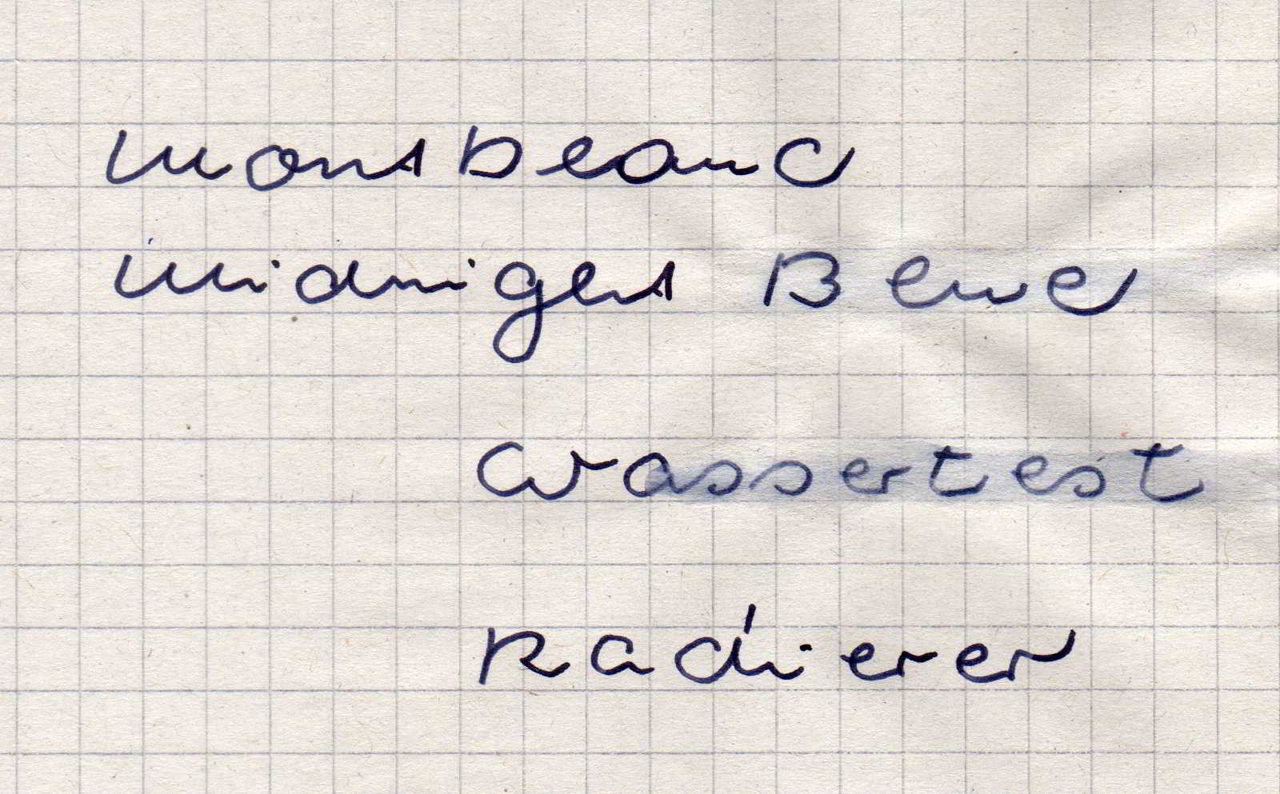 Montbeanc
Midnight Bewe
Wassertest
Radierer